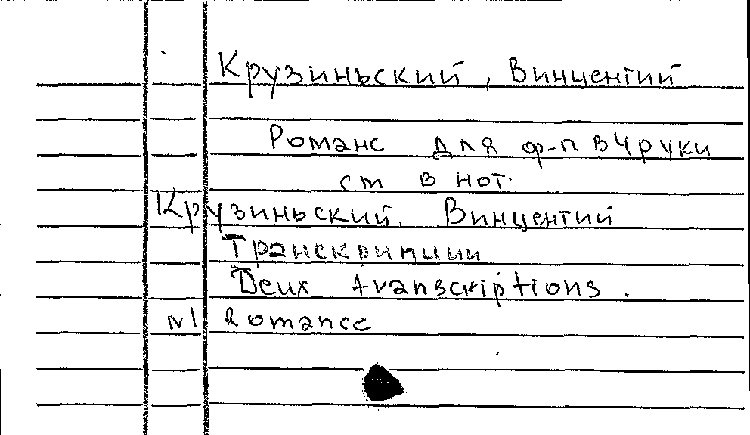 Крузиньский, Винцентий
Романс для ф-п в 4 руки
см в нот.
Крузиньский. Винцентий
Транскрипции
Deux transcriptions.
N1 Romance